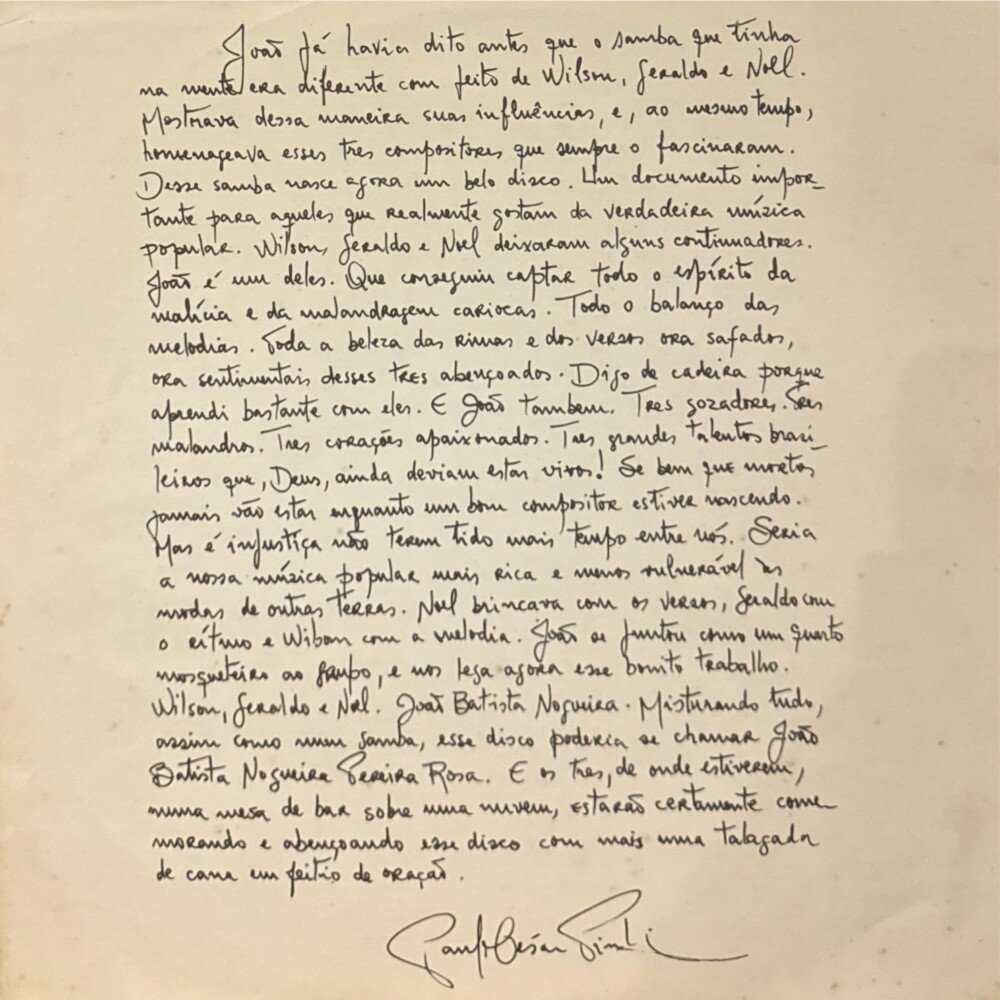 João já havia dito antes que o samba que tinha
na mente era diferente com feito de Wilson, Geraldo e Noel.
Mostrava dessa maneira suas influências, e, ao mesmo tempo,
homenageava esses tres compositores que sempre o fascinaram.
Desse samba nasce agora um belo disco. Um documento impor-
tante para aqueles que realmente gostam da verdadeira múzica
popular. Wilson, Geraldo e Noel deixaram alguns continuadores.
João é um deles. Que conseguiu captar todo o espírito da
malícia e da malandragem cariocas. Todo o balanço das
melodias. Toda a beleza das rimas e dos versos ora safados,
ora sentimentais desses tres abençoados. Digo de cadeira porque
aprendi bastante com eles. E João tambem. Tres gozadores. Tres
malandros. Tres corações apaixonados. Tres grandes talentos brasi-
leiros que, Deus, ainda deviam estar vivos! Se bem que mortos
jamais vão estar enquanto um bom compositor estiver nascendo.
Mas é injustiça não terem tido mais tempo entre nós. Seria
a nossa múzica popular mais rica e menos vulnerável às
modas de outras terras. Noel brincava com os versos, Geraldo com
o ritmo e Wilson com a melodia. João se juntou como um quarto
mosqueteiro ao grupo, e nos lega agora esse bonito trabalho.
Wilson, Geraldo e Noel. João Batista Nogueira. Misturando tudo,
assim como num samba, esse disco poderia se chamar João
Batista Nogueira Pereira Rosa. E os tres, de onde estiverem,
numa mesa de bar sobre uma nuvem, estarão certamente come-
morando e abençoando esse disco com mais uma talagada
de cana em feitio de oração.
Paulo César Pinheiro